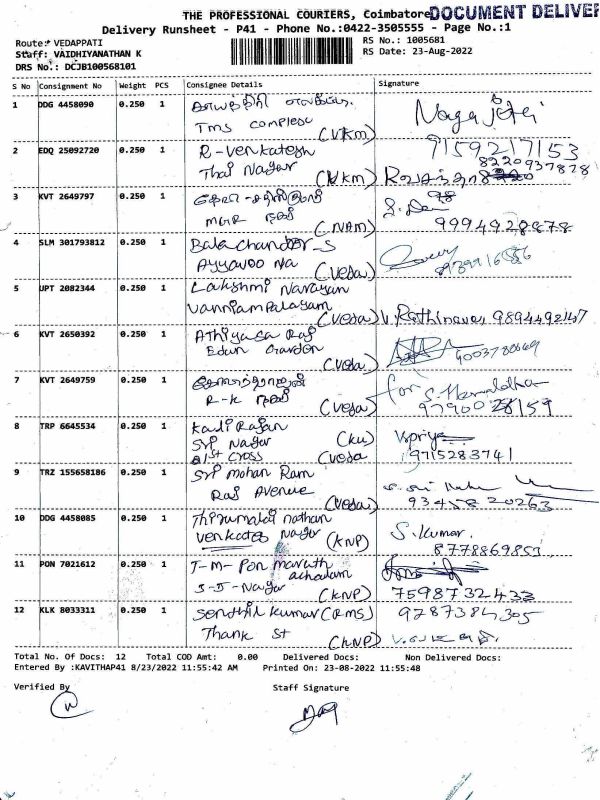 THE PROFESSIONAL COURIERS, Coimbatore DOCUMENT DELIVER
Delivery Runsheet - P41 - Phone No.:0422-3505555 - Page No.:1
Route:* VEDAPPATI
Staff: VAIDHIYANATHAN K
DRS No.: DCJB100568101
RS No.: 1005681
RS Date: 23-Aug-2022
S No Consignment No Weight PCS Consignee Details Signature
1 DDG 4458090 0.250 1
TMS complex (VKm)
2 EDQ 25092720 0.250 1 R-Venkatesh 7159217153
Thai Nagar (VKm)
3 KVT 2649797 0.250 1
MGR நகர் (NAM) 9994928878
4 SLM 301793812 0.250 1 Bala chander S
Ayyavoo Na (Veda)
5 UPT 2082344 0.250 1 Lakshmi Narayan
Vanniampalayam (Veda) V. Rathinavel 9894492147
6 KVT 2650392 0.250 1 Athiyasa Raj
Edan Garden (Veda) 9003780669
7 KVT 2649759 0.250 1 for
R-K நகர் (Veda) 9790028159
8 TRP 6645534 0.250 1 Kadirajan
Sri Nagar (KU) Vpriya
1st cross (Veda 9715283741
9 TRZ 155658186 0.250 1 Sri Mohan Ram
Raj Avenue (Veda) 9345820263
10 DDG 4458085 0.250 1 Thirumalai nathan S. Kumar
Venkates Nagar (KNP) 8778869853
11 PON 7021612 0.250 1 T-M-Pon maruth
achalam
J-J-Nagar (KNP) 7598732433
12 KLK 8033311 0.250 1 Senthil Kumar (RMS) 9287384305
Thank St (KNP)
Total No. Of Docs: 12 Total COD Amt: 0.00 Delivered Docs: Non Delivered Docs:
Entered By :KAVITHAP41 8/23/2022 11:55:42 AM Printed On: 23-08-2022 11:55:48
Verified By Staff Signature